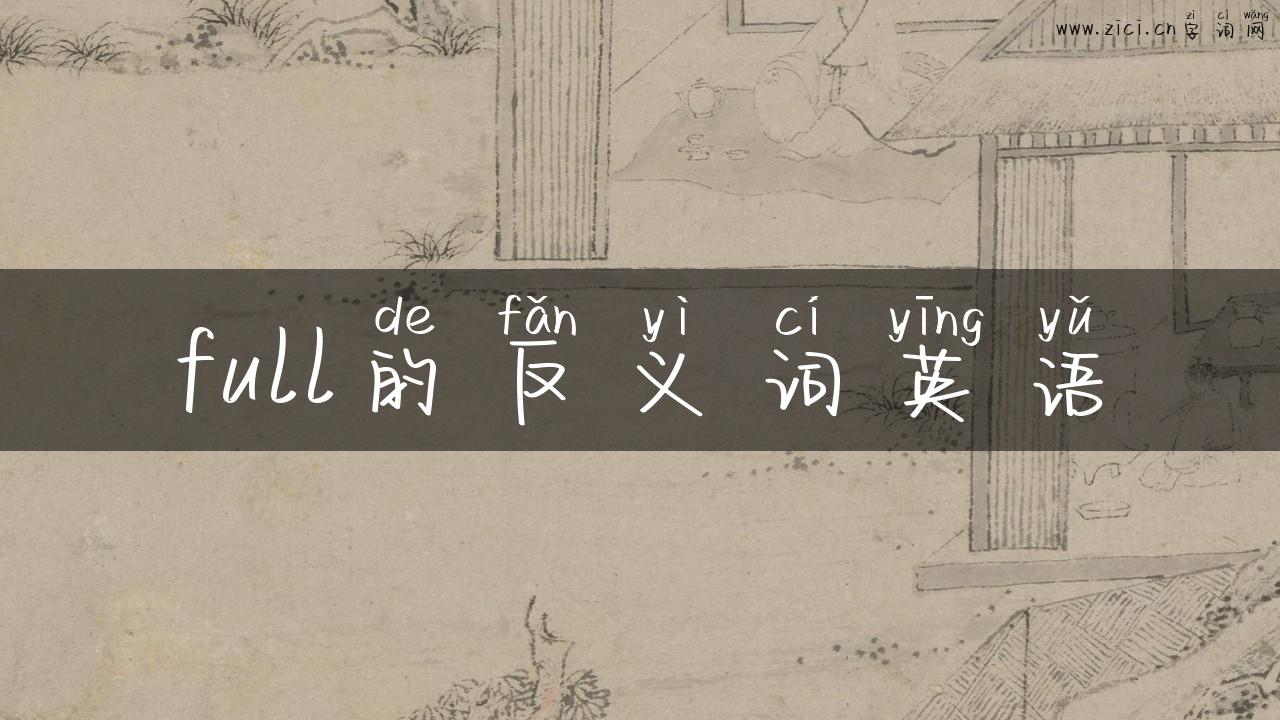 zì cí wǎng
www.zici.cn 字 词 网
de fǎn yì cí yīng yǔ
full 的 反 义 词 英 语